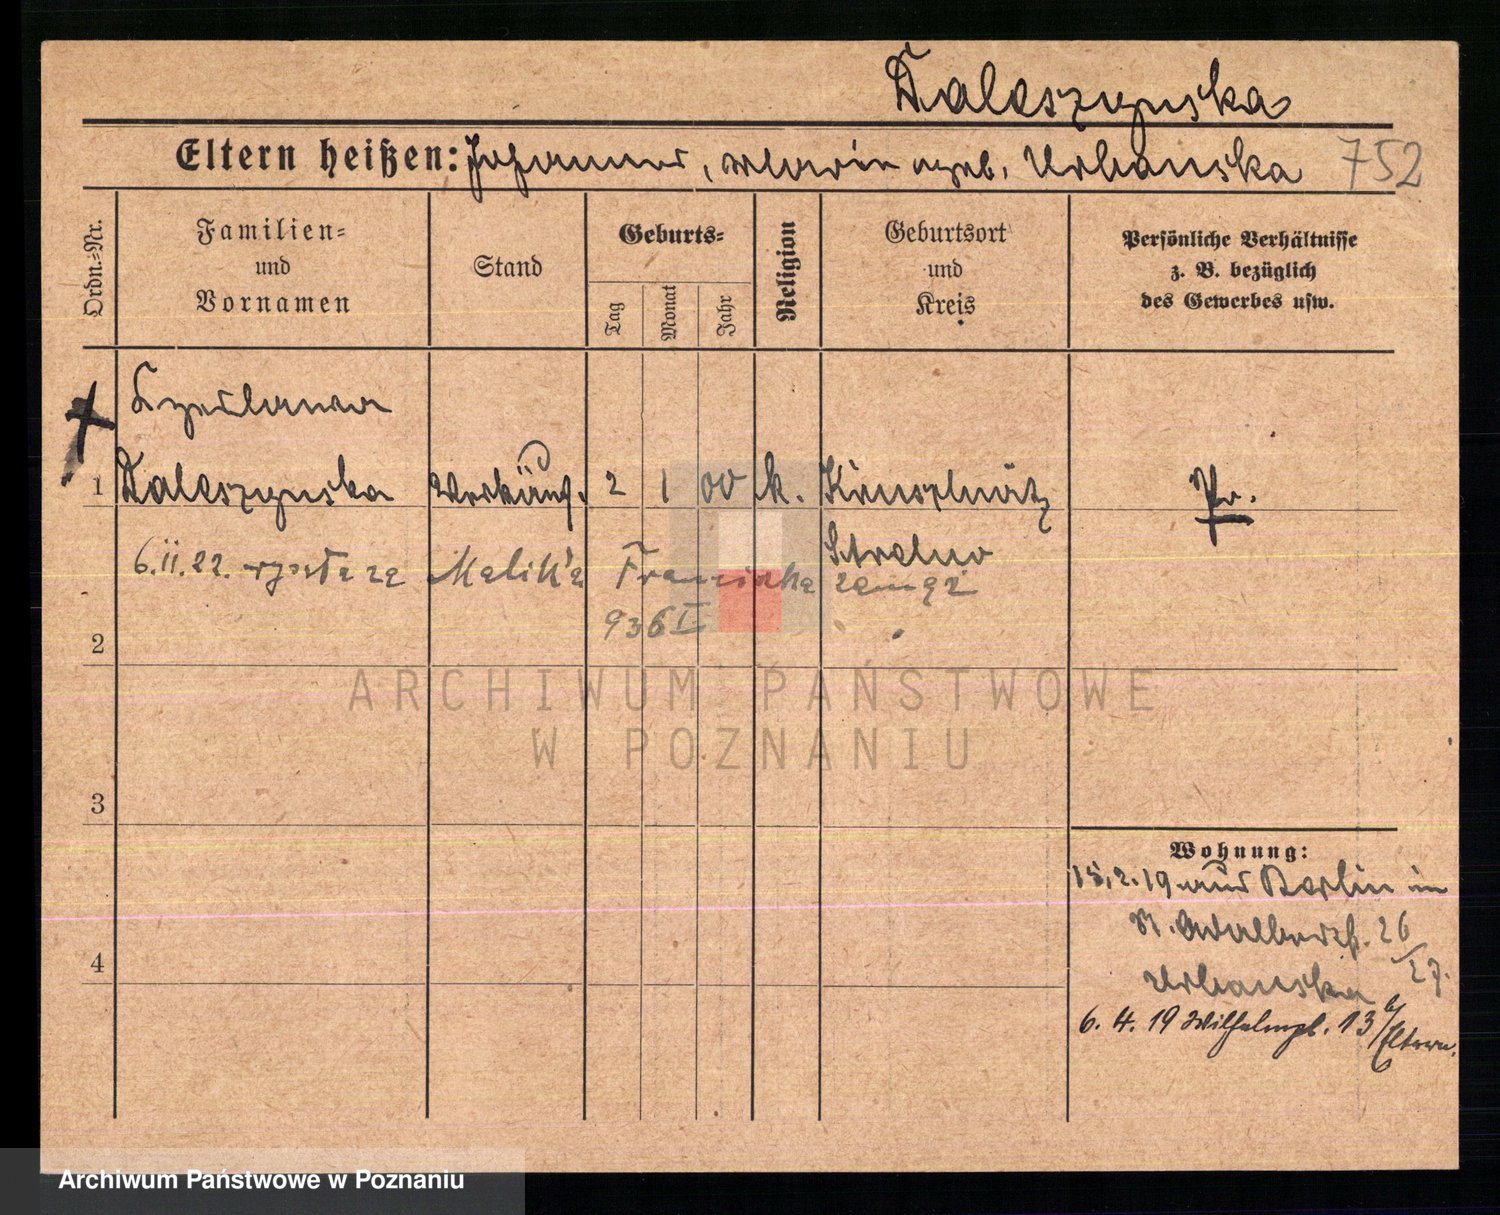 Daleszynska
Eltern heißen: Johannes, Marie geb. Urbanska 752
Ordn.-Nr.
Familien-
und
Vornamen
Stand
Geburts-
Tag
Monat
Jahr
Religion
Geburtsort
und
Kreis
Persönliche Verhältnisse
z. B. bezüglich
des Gewerbes usw.
1 Daleszynska Verkäuf. 2 1 00 k. Kruschwitz Pr.
Strelno
6.II.22. wyszła za Malik'a Franciszka zamąż
936 I
2
3
4
Wohnung:
15.2.19 aus Berlin in
St. Adalbertst. 26/27.
Urbanska
6. 4. 19 Wilhelmpl. 13 b/Eltern.
ARCHIWUM PAŃSTWOWE
W POZNANIU
Archiwum Państwowe w Poznaniu